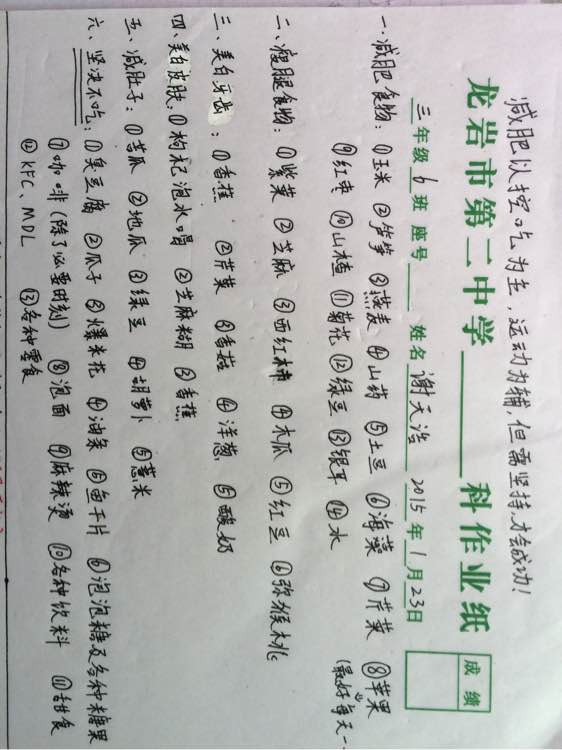 减肥以控吃为主，运动为辅，但需坚持，才会成功！
龙岩市第二中学 科作业纸
三年级6班 座号 姓名谢天浩 2015年1月23日 成绩
一、减肥食物：①玉米 ②竹笋 ③燕麦 ④山药 ⑤土豆 ⑥海藻 ⑦芹菜 ⑧苹果（最好每天一
⑨红枣 ⑩山楂 ⑪菊花 ⑫绿豆 ⑬银耳 ⑭水
二、瘦腿食物：①紫菜 ②芝麻 ③西红柿 ④木瓜 ⑤红豆 ⑥弥猴桃
三、美白牙齿：①香菇 ②芹菜 ③香菇 ④洋葱 ⑤酸奶
四、美白皮肤：①枸杞泡水喝 ②芝麻糊 ③香蕉
五、减肚子：①苦瓜 ②地瓜 ③绿豆 ④胡萝卜 ⑤薏米
六、坚决不吃：①臭豆腐 ②瓜子 ③爆米花 ④油条 ⑤鱼干片 ⑥泡泡糖及各种糖果
⑦咖啡（除了必要时刻） ⑧泡面 ⑨麻辣烫 ⑩各种饮料 ⑪甜食
⑫KFC、MDL ⑬各种零食